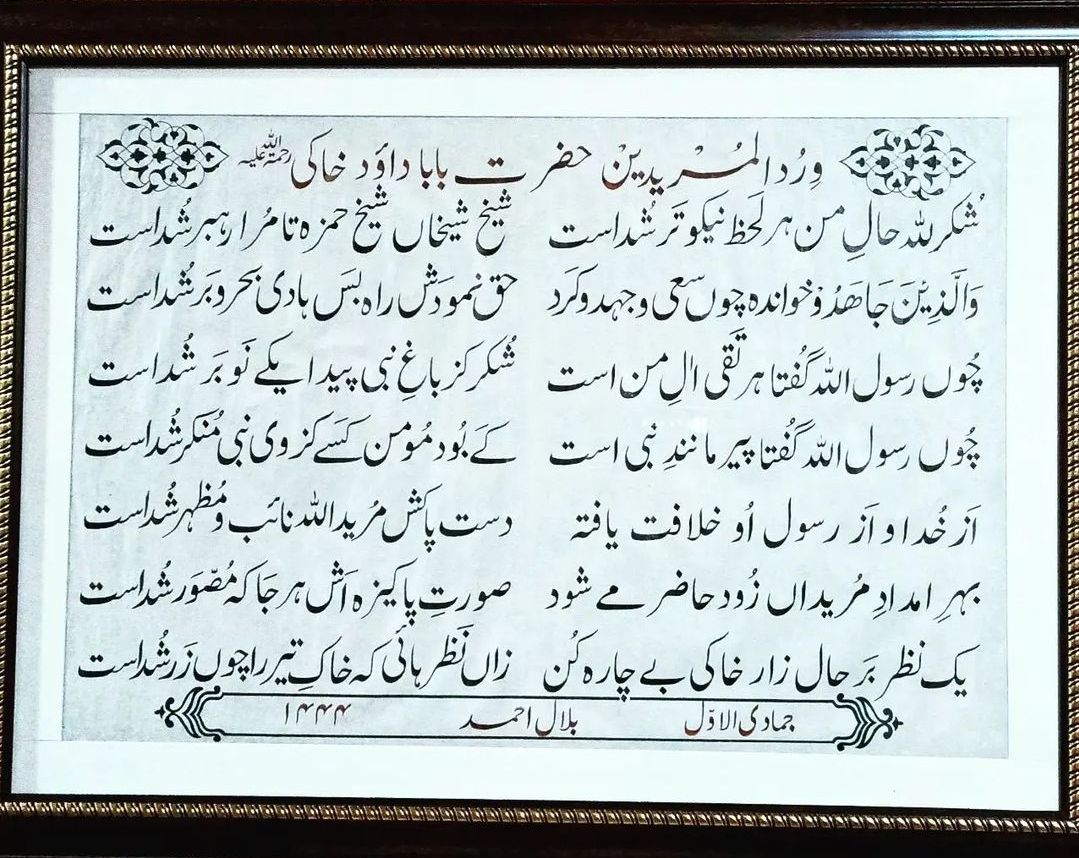 وِرُد المُریدین حضرت بابا داؤد خاکی رحمۃ اللہ علیہ
شُکر للہ حالِ من ہر لحظ نیکو تَر شُداست شیخ شیخاں شیخ حمزہ تا مُرا رہبر شُداست
وَالَّذِیْنَ جَاھَدُوْ خواندہ چوں سعی و جہد و کَرد حق نمودش راہ بس ہادی بحر و بَر شُداست
چُوں رسول اللہ گُفتا ہر تَقی اٰل من است شُکر کز باغِ نبی پیدا یکے نَو بَر شُداست
چُوں رسول اللہ گُفتا پیر مانندِ نبی است کے بُود مُومن کَسے کز وی نبی مُنکر شُداست
اَز خُدا و اَز رسول اُو خلافت یافتہ دست پاکش مُرید اللہ نائب و مُظہر شُداست
بہرِ امدادِ مُریداں زُود حاضر مے شود صورتِ پاکیزہ اَش ہر جا کہ مُصّوَر شُداست
یک نظر بَر حال زار خاکی بے چارہ کُن زاں نَظر ہائی کہ خاکِ تیر را چوں زَر شُداست
جمادی الاوّل بلال احمد ۱۴۴۴